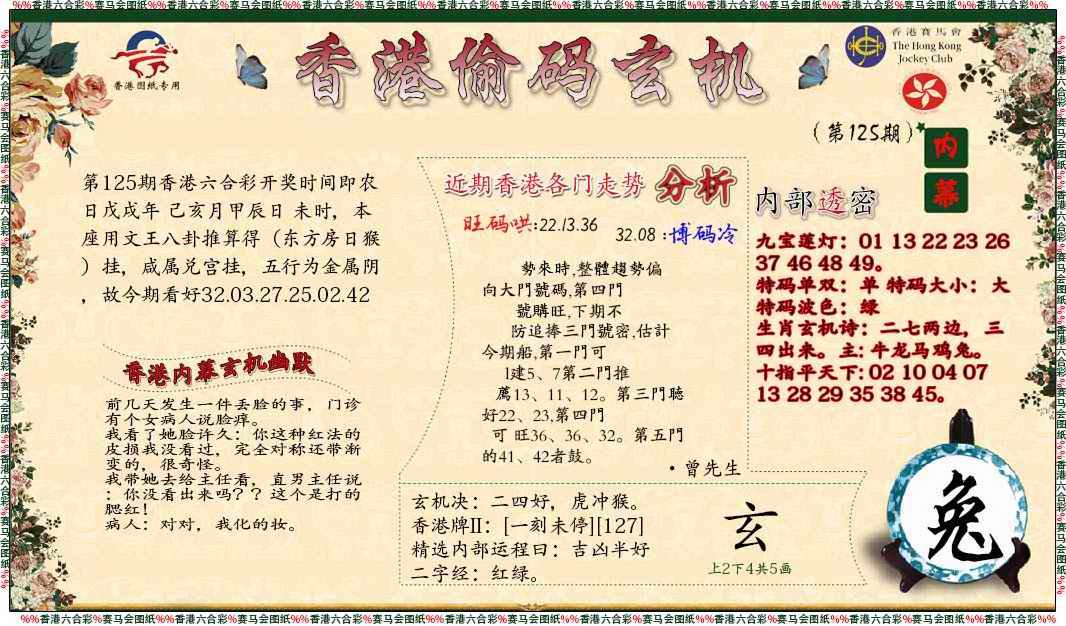 %%香港六合彩%赛马会图纸%%香港六合彩%赛马会图纸%%香港六合彩%赛马会图纸%%香港六合彩%赛马会图纸%%香港六合彩%赛马会图纸%%香港六合彩%赛马会图纸%%香港六合彩%%
香港图纸专用
香港偷码玄机
香港賽馬會
The Hong Kong
Jockey Club
(第125期)
内
幕
第125期香港六合彩开奖时间即农
日戊戌年 己亥月甲辰日 未时，本
座用文王八卦推算得（东方房日猴
）挂，咸属兑宫挂，五行为金属阴
，故今期看好32.03.27.25.02.42
香港内幕玄机幽默
前几天发生一件丢脸的事，门诊
有个女病人说脸痒。
我看了她脸许久：你这种红法的
皮损我没看过，完全对称还带渐
变的，很奇怪。
我带她去给主任看，直男主任说
：你没看出来吗？？这个是打的
腮红!
病人：对对，我化的妆。
近期香港各门走势 分析
旺码哄:22.13.36
32.08 :博码冷
勢來時,整體趨勢偏
向大門號碼,第四門
號購旺,下期不
防追捧三門號密,估計
今期船,第一門可
1建5、7第二門推
薦13、11、12。第三門聴
好22、23,第四門
可 旺36、36、32。第五門
的41、42者鼓。
·曾先生
内部透密
九宝莲灯：01 13 22 23 26
37 46 48 49。
特码单双：单 特码大小：大
特码波色：绿
生肖玄机诗：二七两边，三
四出来。主: 牛龙马鸡兔。
十指平天下: 02 10 04 07
13 28 29 35 38 45。
玄机决：二四好，虎冲猴。
香港牌II：[一刻未停][127]
精选内部运程日：吉凶半好
二字经：红绿。
玄
上2下4共5画
兔
%%香港六合彩%赛马会图纸%%香港六合彩%赛马会图纸%%香港六合彩%赛马会图纸%%香港六合彩%赛马会图纸%%香港六合彩%赛马会图纸%%香港六合彩%赛马会图纸%%香港六合彩%%